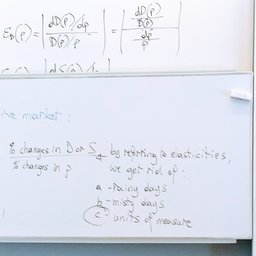 ε_D(p) = | dD(p)/dp / D(p)/p | = | dD(p) / D(p) / dp / p |
market:
% changes in D or S
% changes in p
by referring to elasticities,
we get rid of:
a - rainy days
b - misty days
c - units of measure